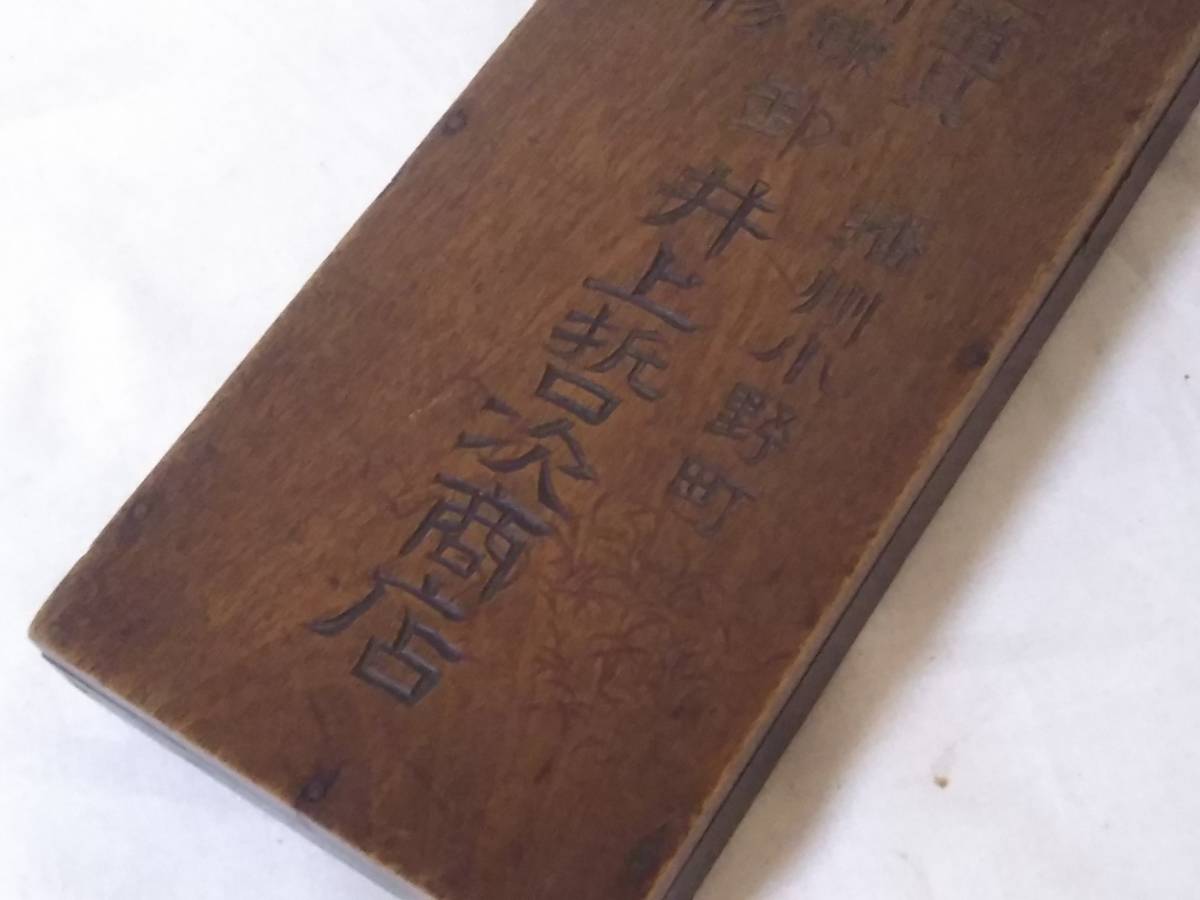 播州小野町
卸
井上哲次商店